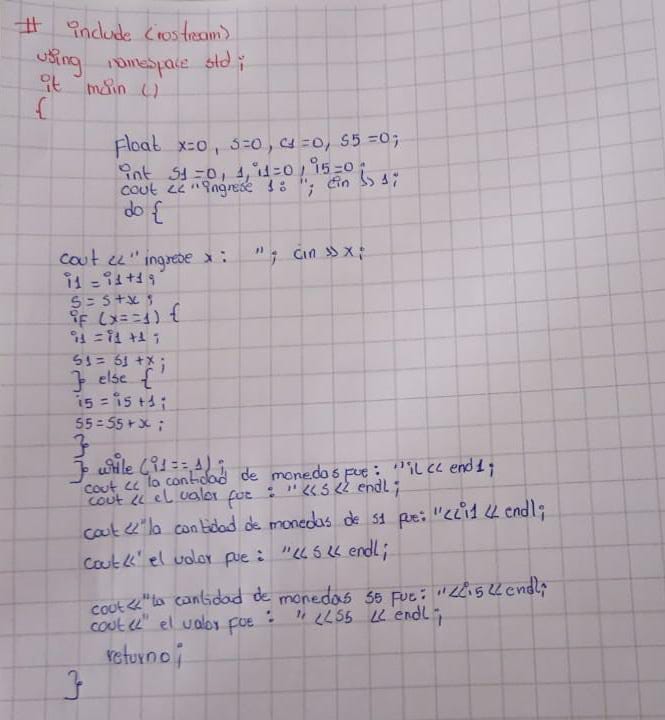 # include (iostream)
using namespace std;
it main ()
{
Float x=0, s=0, c1=0, S5=0;
int S1=0, 1, i1=0, i5=0;
cout << "ingrese 1: "; cin >> 1;
do {
cout << "ingrese x: "; cin >> x;
i1 = i1+1;
s = s+x;
if (x==1) {
i1 = i1 +1;
S1 = S1 +x;
} else {
i5 = i5+1;
S5 = S5+x;
}
} while (i1==1);
cout << la cantidad de monedas fue: "il << end1;
cout << el valor fue: "<<S<< endl;
cout <<"la cantidad de monedas de s1 fue: "<<i1 << endl;
cout <<" el valor fue: "<< S << endl;
cout<<"la cantidad de monedas S5 fue: "<<i5<< endl;
cout <<" el valor fue : " <<S5 << endl;
returno;
}